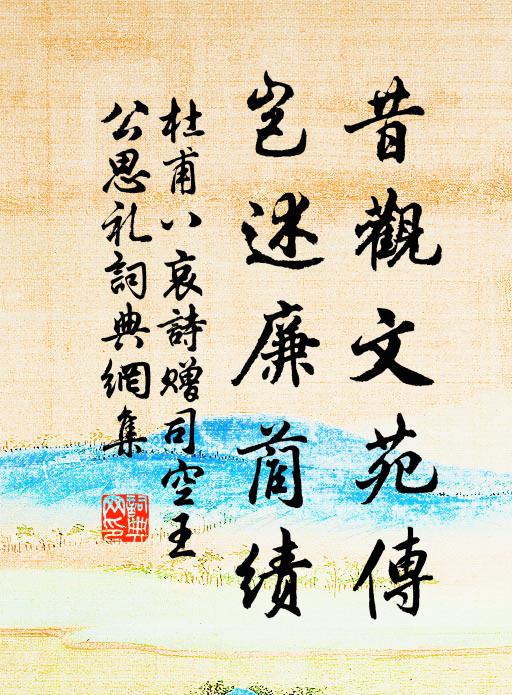 昔觀文苑傳
岂述廉藺績
杜甫八哀詩贈司空王
公思礼詞典網集